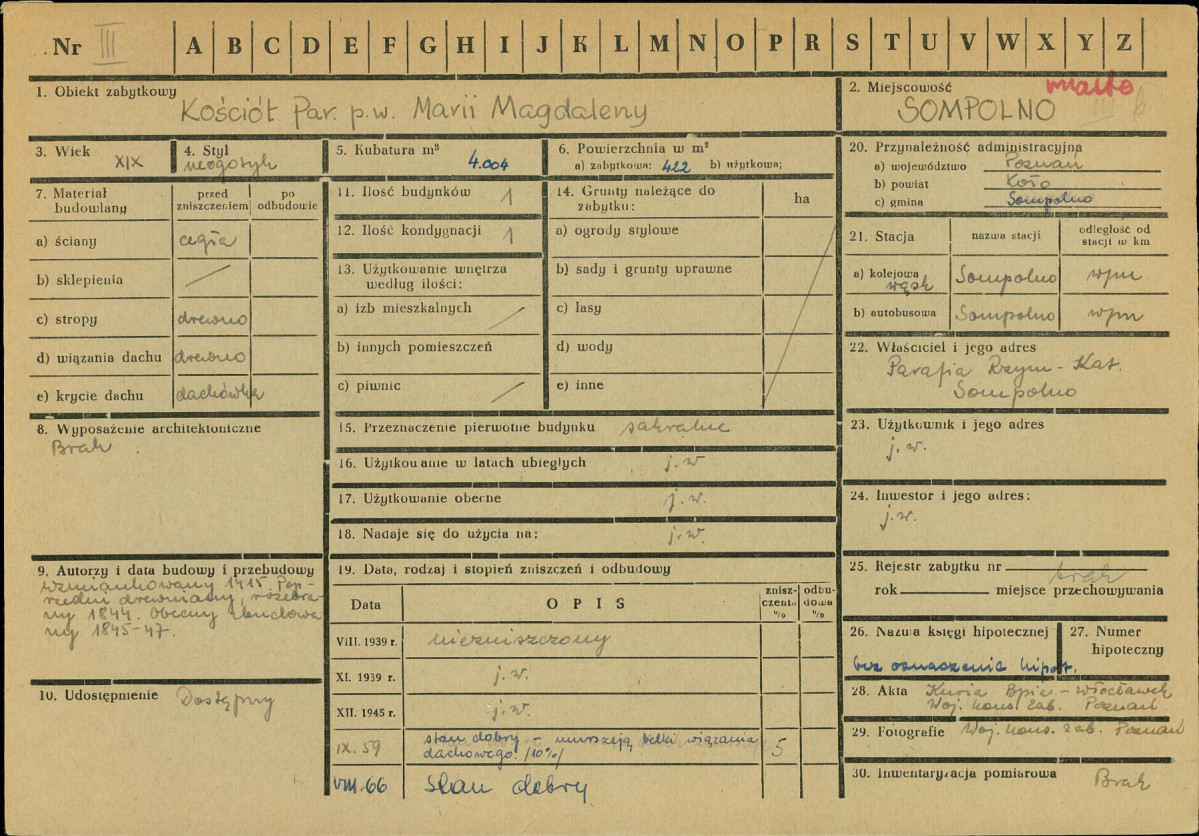 Nr III A B C D E F G H I J K L M N O P R S T U V W X Y Z
1. Obiekt zabytkowy
Kościół Par. p.w. Marii Magdaleny
2. Miejscowość miasto
SOMPOLNO III b
3. Wiek XIX
4. Styl neogotyk
5. Kubatura m³ 4.004
6. Powierzchnia w m²
a) zabytkowa: 422 b) użytkowa;
7. Materiał budowlany
przed zniszczeniem
po odbudowie
a) ściany cegła
b) sklepienia /
c) stropy drewno
d) wiązania dachu drewno
e) krycie dachu dachówka
8. Wyposażenie architektoniczne
Brak
9. Autorzy i data budowy i przebudowy
wzmiankowany 1415. Pop-
rzedni drewniany, rozebra-
ny 1844. Obecny zbudowa-
ny 1845-47.
10. Udostępnienie Dostępny
11. Ilość budynków 1
12. Ilość kondygnacji 1
13. Użytkowanie wnętrza
według ilości:
a) izb mieszkalnych /
b) innych pomieszczeń
c) piwnic /
14. Grunty należące do
zabytku:
ha
a) ogrody stylowe
b) sady i grunty uprawne
c) lasy
d) wody
e) inne
15. Przeznaczenie pierwotne budynku sakralne
16. Użytkowanie w latach ubiegłych j.w
17. Użytkowanie obecne j.w.
18. Nadaje się do użycia na: j.w.
19. Data, rodzaj i stopień zniszczeń i odbudowy
Data
OPIS
znisz-
czenia
%
odbu-
dowa
%
VIII. 1939 r. niezniszczony
XI. 1939 r. j.w.
XII. 1945 r. j.w.
IX. 59 stan dobry - murszeją belki wiązania
dachowego. /10%/ 5
VIII-66 stan dobry
20. Przynależność administracyjna
a) województwo Poznań
b) powiat Koło
c) gmina Sompolno
21. Stacja
nazwa stacji
odległość od
stacji w km
a) kolejowa wąsk Sompolno wpm
b) autobusowa Sompolno wpm
22. Właściciel i jego adres
Parafia Rzym-Kat.
Sompolno
23. Użytkownik i jego adres
j.w.
24. Inwestor i jego adres:
j.w.
25. Rejestr zabytku nr brak
rok miejsce przechowywania
26. Nazwa księgi hipotecznej
bez oznaczenia hipot.
27. Numer
hipoteczny
28. Akta Kuria Bpia - Włocławek
Woj. kons. zab. Poznań
29. Fotografie Woj. kons. zab. Poznań
30. Inwentaryzacja pomiarowa Brak